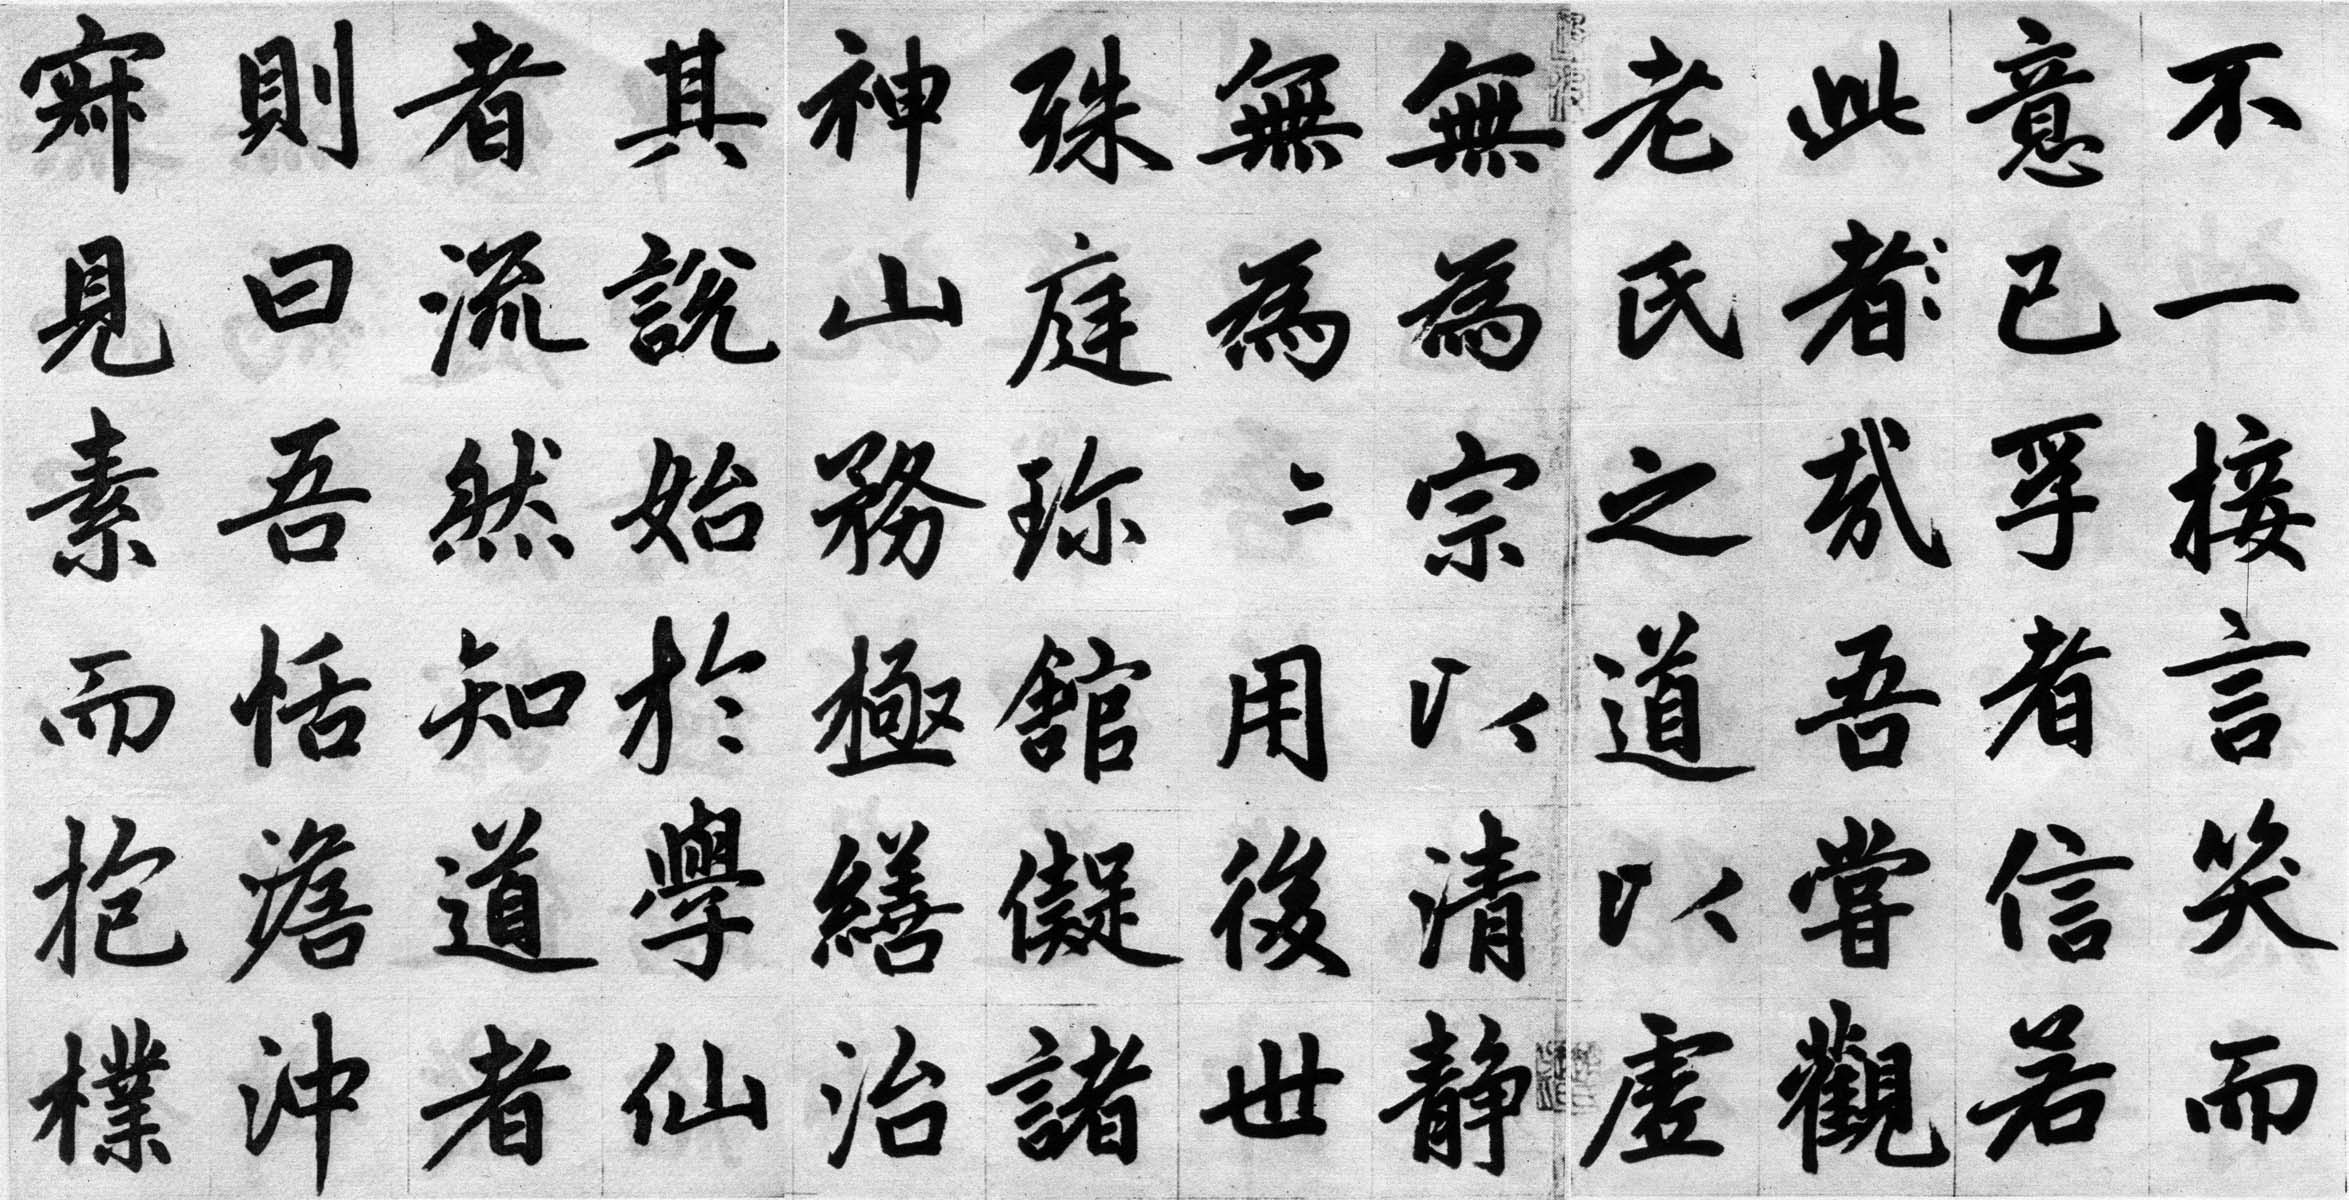 不一接言笑而
意已孚者信若
此者哉吾嘗觀
老氏之道以虛
無為宗以清静
無為〻用後世
殊庭珎舘儗諸
神山務極繕治
其說始於學仙
者流然知道者
則曰吾恬澹沖
㝛見素而抱樸